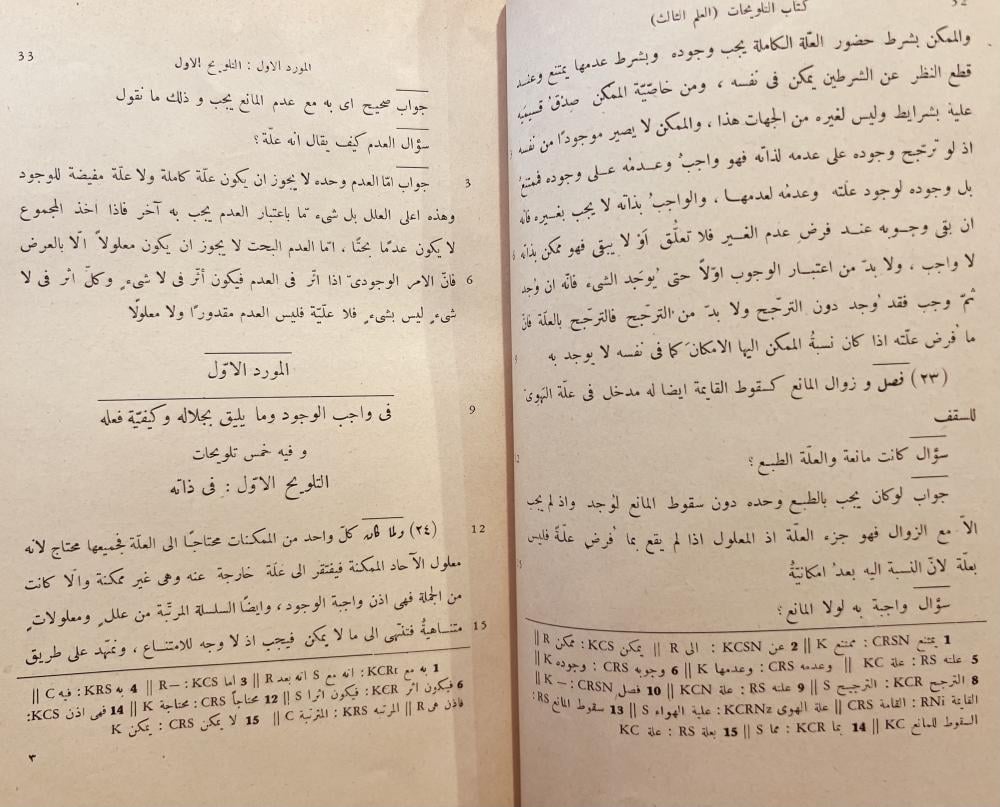 كتاب التلويحات (العلم الثالث)
والممكن بشرط حضور العلّة الكاملة يجب وجوده وبشرط عدمها يمتنع وعنـد
قطع النظر عن الشرطين يمكن فى نفسه ، ومن خاصّيّة الممكن صدْق قسيميه
عليه بشرايط وليس لغيره من الجهات هذا ، والممكن لا يصير موجودًا من نفسه
اذ لو ترجّح وجوده على عدمه لذاته فهو واجبٌ وعـدمُه عـلى وجوده فممتنعٌ
بل وجوده لوجود علّته وعدمُه لعدمهـا ، والواجبُ بذاته لا يجب بغـيره فانّه
ان بقى وجـوبه عنـد فرض عدم الغـير فلا تعلّق أوْ لا يبقى فهو ممكن بذاته
لا واجب ، ولا بدّ من اعتبـار الوجوب اوّلاً حتى يُوجَد الشىء فانّه ان وُجد
ثمّ وجب فقد وُجد دون الترجّح ولا بدّ من الترجّح فالترجّح بالعلّة فانّ
ما فُرض علّته اذا كان نسبةُ الممكن اليها الامكانَ كما فى نفسه لا يوجد به
(٢٣) فصل و زوال المانع كسقوط القايمة ايضا له مدخل فى علّة الهوىّ
للسقف
سؤال كانت مانعة والعلّة الطبـع ؟
جواب لوكان يجب بالطبـع وحده دون سقوط المانع لوُجد واذ لم يجب
الاّ مع الزوال فهو جزء العلّة اذ المعلول اذا لم يقع بما فُرض علّةً فليس
بعلّة لانّ النسبة اليه بعدُ امكانيّةٌ
سؤال واجبة به لولا المانع ؟
1 يمتنع CRSN : ممتنع K || 2 عن KCSN : الى R || يمكن KCS : ممكن R ||
5 علته RS : علة KC || وعدمه CRS : وعدمها K || 6 وجوبه CRS : وجوده K ||
8 الترجح KCR : الترجيح S || 9 علته RS : علة KCN || 10 فصل CRSN : — K ||
القايمة RNi : القامة CRS || علة الهوى KCRNz : علية الهواء S || 13 سقوط المانع RS :
السقوط للمانع KC || 14 بما KCR : مما S || 15 بعلة RS : علة KC
المورد الاول : التلويح الاول
33
جواب صحيح اى به مع عدم المانع يجب و ذلك ما نقول
سؤال العدم كيف يقال انه علّة ؟
3 جواب امّا العدم وحده لا يجوز ان يكون علّة كاملة ولا علّة مفيضة للوجود
وهذه اعلى العلل بل شىء ممّا باعتبار العدم يجب به آخر فاذا اخذ المجموع
لا يكون عدمًا بحتًا ، امّا العدم البحت لا يجوز ان يكون معلولاً الّا بالعرض
6 فانّ الامر الوجودىّ اذا اثّر فى العدم فيكون أثّر فى لا شىءٍ وكلّ اثر فى لا
شىءٍ ليس بشىءٍ فلا علّيّة فليس العدم مقدورًا ولا معلولًا
المورد الاوّل
9 فى واجب الوجود وما يليق بجلاله وكيفيّة فعله
و فيه خمس تلويحات
التلويح الاوّل : فى ذاته
12 (٢٤) ولما كان كلّ واحد من الممكنات محتاجًا الى العلّة فجميعها محتاج لانه
معلول الآحاد الممكنة فيفتقر الى علّة خارجة عنه وهى غير ممكنة والّا كانت
من الجملة فهى اذن واجبة الوجود ، وايضًا السلسلة المرتّبة من عللٍ ومعلولاتٍ
15 متناهيةٌ فتنتهى الى ما لا يمكن فيجب اذ لا وجه للامتناع ، ونمهّد على طريق
1 به مع KCRt : انه مع S انه بعد R || 3 اما KCS : — R || 4 به KRS : فيه C ||
6 فيكون اثر KCR : فيكون اثرا S || 12 محتاجاً CRS : محتاجة K || 14 فهى اذن KCS :
فاذن هى R || المرتبه KRS : المترتبة C || 15 لا يمكن CRS : يمكن K
٣